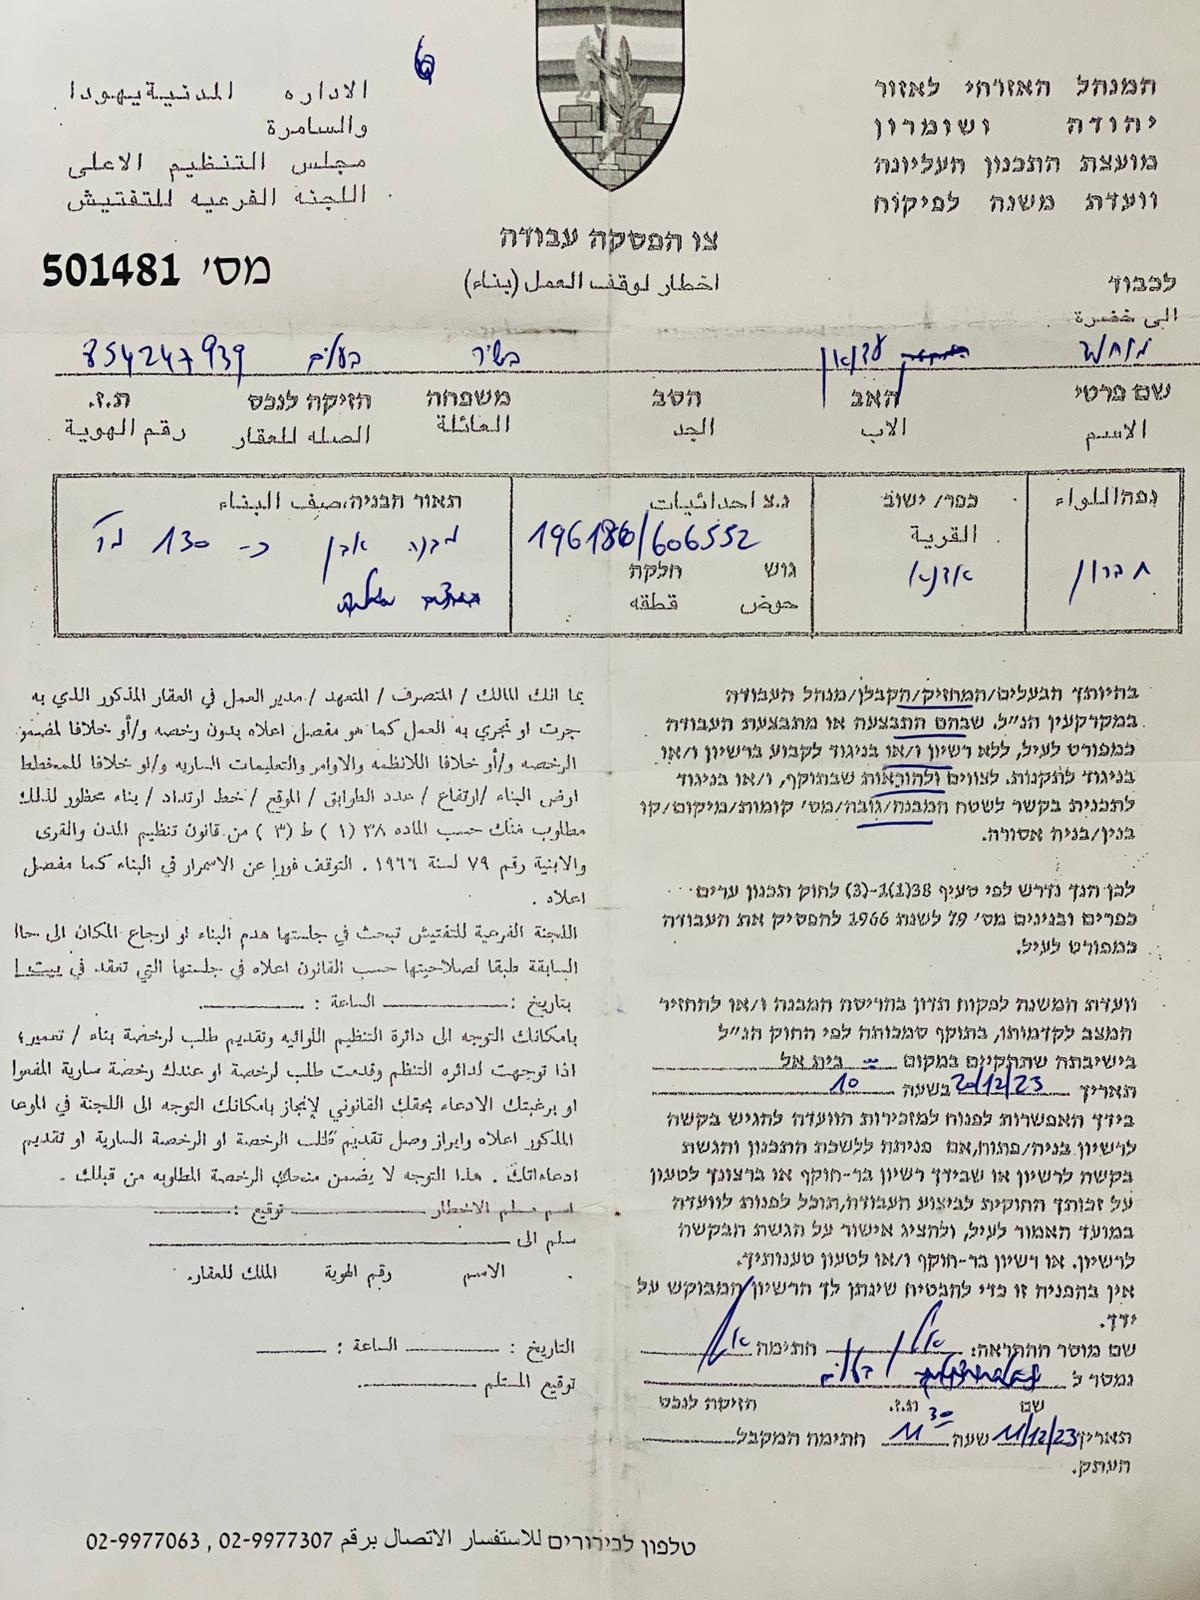 המנהל האזרחי לאזור
יהודה ושומרון
מועצת התכנון העליונה
וועדת משנה לפיקוח
الاداره المدنية يهودا
والسامرة
مجلس التنظيم الاعلى
اللجنه الفرعيه للتفتيش
צו הפסקה עבודה
اخطار لوقف العمل (بناء)
מס' 501481
לכבוד
الى حضرة
מוחמד עדנאן בשיר בעלים 854247939
שם פרטי האב הסב משפחה הזיקה לנכס ת.ז.
الاسم الاب الجد العائلة الصله للعقار رقم الهوية
נפה اللواء כפר/ישוב נ.צ احداثيات תאור הבניה، صيف البناء
القرية
196186/606552
מבנה אבן כ- 130 מ"ר
חברון אדנא
גוש חלקה
حوض قطقه
בהיותך הבעלים/המחזיק/הקבלן/מנהל העבודה
במקרקעין הנ"ל, שבהם התבצעה או מתבצעת העבודה
כמפורט לעיל, ללא רשיון ו/או בניגוד לקבוע ברשיון ו/או
בניגוד לתקנות. לצווים ולהוראות שבתוקף, ו/או בניגוד
לתכנית בקשר לשטח המבנה/גובה/מס' קומות/מיקום/קו
בנין/בניה אסורה.
לכן הנך נדרש לפי סעיף 38(1)-(3) לחוק תכנון ערים
כפרים ובנינים מס' 79 לשנת 1966 להפסיק את העבודה
כמפורט לעיל.
וועדת המשנה לפקוח תדון בהריסת המבנה ו/או להחזיר
המצב לקדמותו, בתוקף סמכותה לפי החוק הנ"ל
בישיבתה שתתקיים במקום בית אל
תאריך 20/12/23 בשעה 10
בידך האפשרות לפנות למזכירות הוועדה להגיש בקשה
לרשיון בניה/פתוח, אם פניתה ללשכת התכנון והגשת
בקשה לרשיון או שבידך רשיון בר-תוקף או ברצונך לטעון
על זכותך החוקית לביצוע העבודה, תוכל לפנות לוועדה
במועד האמור לעיל, ולהציג אישור על הגשת הבקשה
לרשיון. או רשיון בר-תוקף ו/או לטעון טענותיך.
אין בהפניה זו כדי להבטיח שינתן לך הרשיון המבוקש על
ידך.
שם מוסר ההתראה: חתימה
נמסר ל בעלים
שם ת.ז. הזיקה לנכס
תאריך 11/12/23 שעה 11 30 חתימת המקבל
העתק.
بما انك المالك / المتصرف / المتعهد / مدير العمل في العقار المذكور الذي به
جرت او تجري به العمل كما هو مفصل اعلاه بدون رخصه و/أو خلافا لمضمو
الرخصه و/أو خلافا اللانظمه والاوامر والتعليمات الساريه و/او خلافا للمخطط
ارض البناء /ارتفاع / عدد الطوابق / الموقع / خط ارتداد / بناء محظور لذلك
مطلوب منك حسب الماده ٣٨ (١) ط (٣) من قانون تنظيم المدن والقرى
والابنية رقم ٧٩ لسنة ١٩٦٦. التوقف فورا عن الاسمرار في البناء كما مفصل
اعلاه.
اللجنة الفرعية للتفتيش تبحث في جلستها هدم البناء او ارجاع المكان الى حاا
السابقة طبقا لصلاحيتها حسب القانون اعلاه في جلستها التي تعقد في بيت ا
بتاريخ : الساعة :
بامكانك التوجه الى دائرة التنظيم اللوائيه وتقديم طلب لرخصة بناء / تعمير؛
اذا توجهت لدائره التنظم وقدمت طلب لرخصة او عندك رخصة سارية المفعوا
او برغبتك الادعاء بحقك القانوني لإنجاز بامكانك التوجه الى اللجنة في الموعا
المذكور اعلاه وابراز وصل تقديم طلب الرخصة او الرخصة السارية او تقديم
ادعاءاتك. هذا التوجه لا يضمن منحك الرخصة المطلوبه من قبلك.
اسم مسلم الاخطار توقيع :
سلم الى
الاسم رقم الهوية المالك للعقار.
التاريخ : الساعة :
توقيع المستلم
טלפון לבירורים للاستفسار الاتصال برقم 02-9977307 , 02-9977063